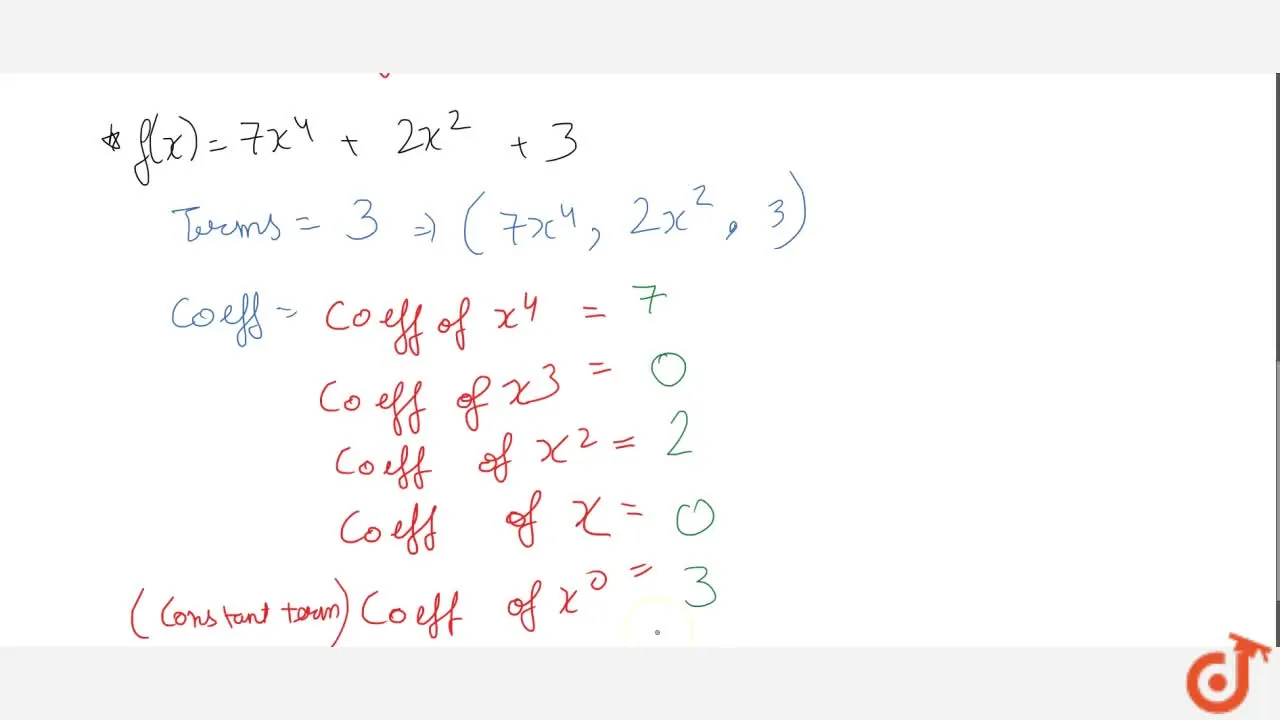 * f(x) = 7x⁴ + 2x² + 3
Terms = 3 ⇒ (7x⁴, 2x², 3)
Coeff = Coeff of x⁴ = 7
Coeff of x³ = 0
Coeff of x² = 2
Coeff of x = 0
(Constant term) Coeff of x⁰ = 3